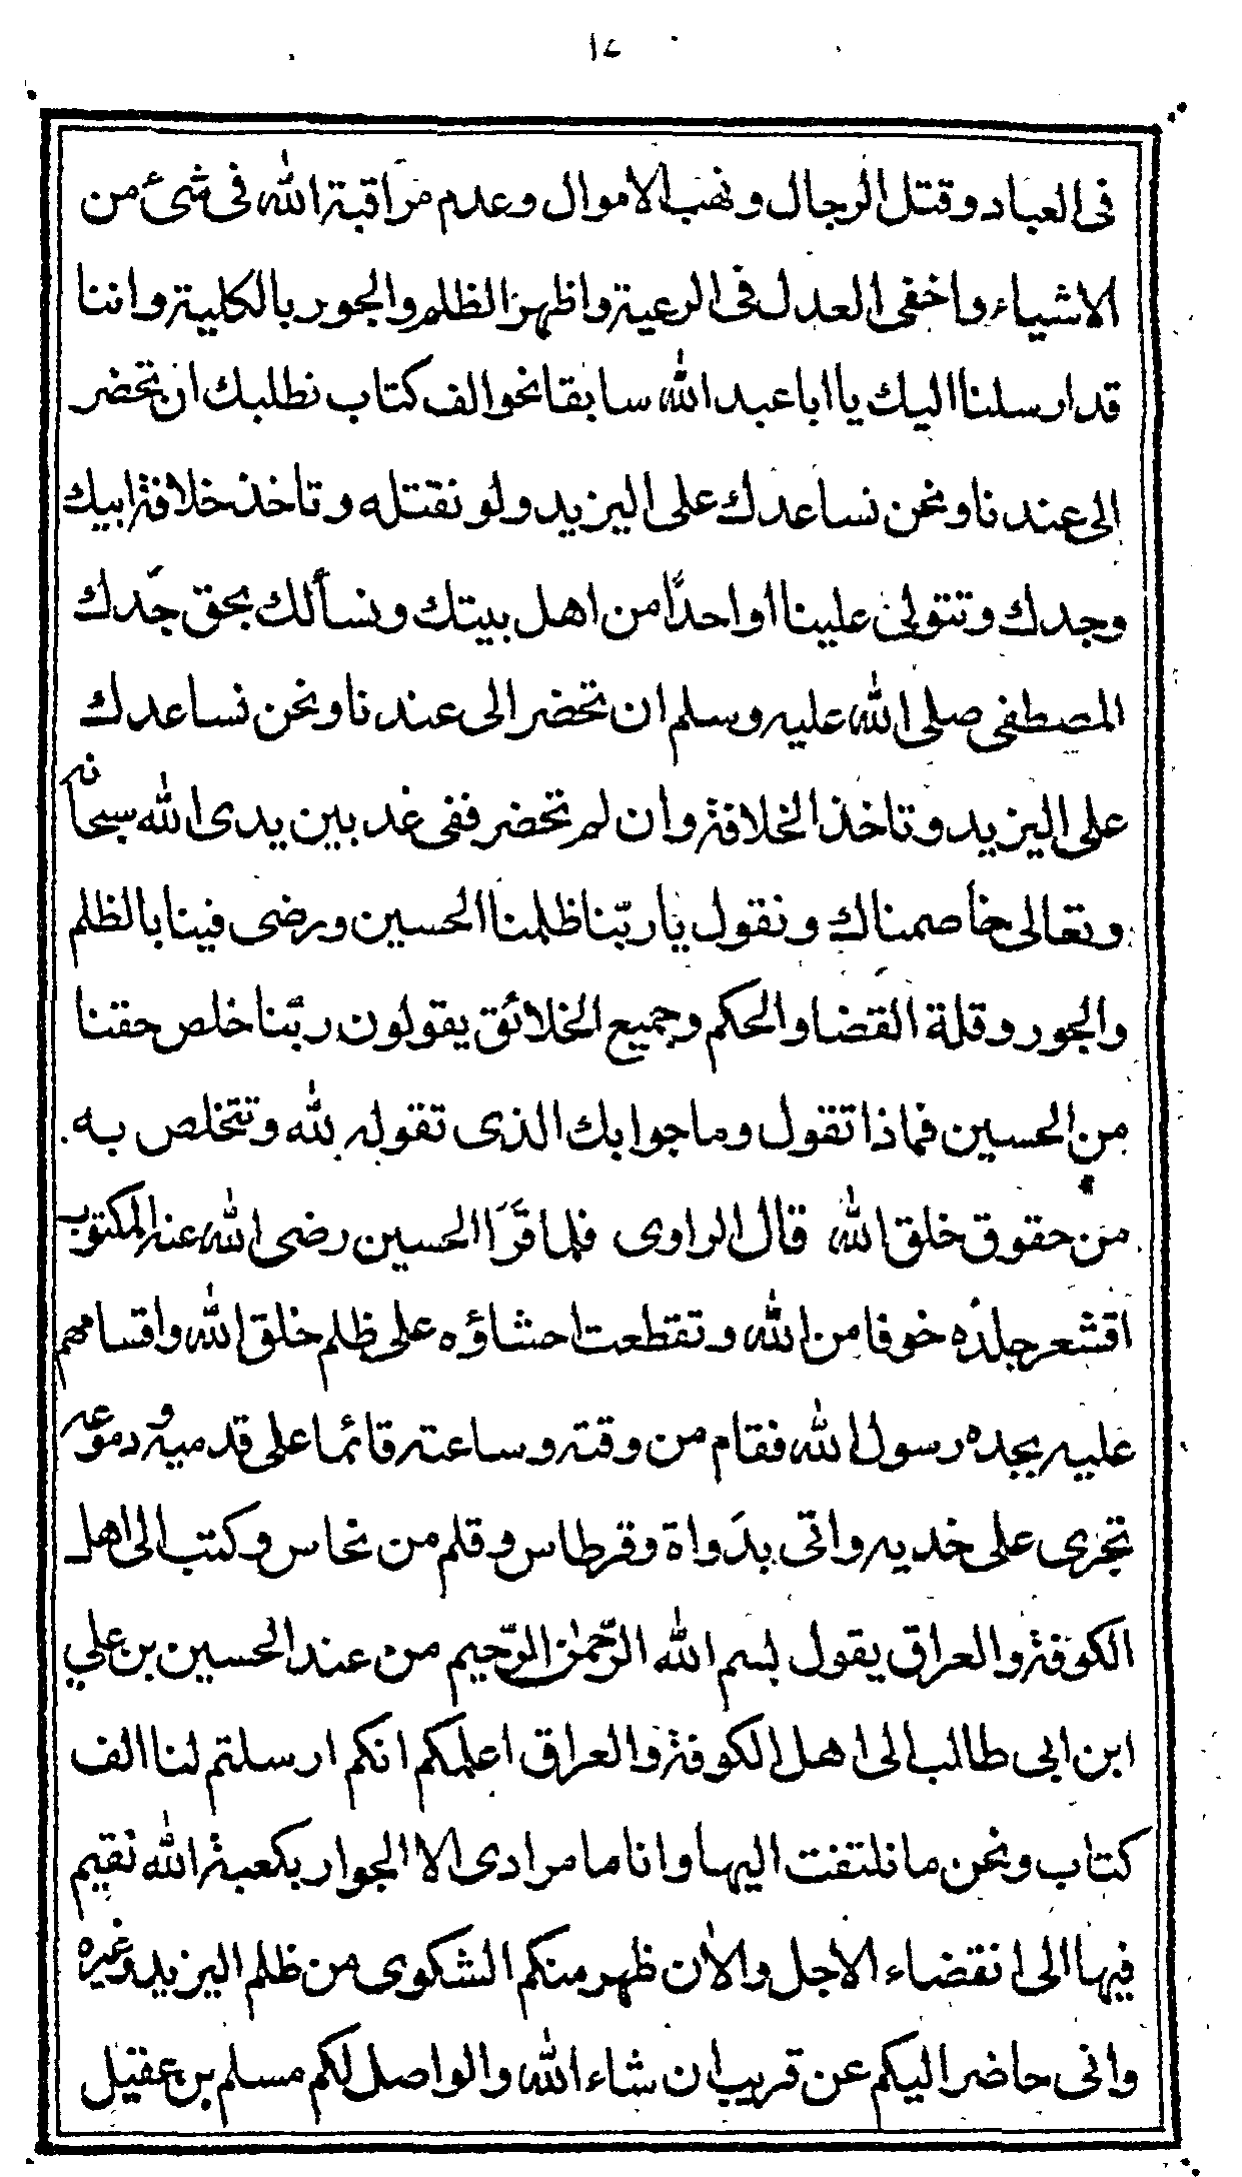 ١٤
فى العباد وقتل الرجال ونهب الاموال وعدم مراقبة الله فى شئ من
الاشياء واخفى العدل فى الرعية واظهر الظلم والجور بالكلية واننا
قد ارسلنا اليك يا ابا عبد الله سابقا نحو الف كتاب نطلبك ان تحضر
الى عندنا ونحن نساعدك على اليزيد ولو نقتله وتاخذ خلافة ابيك
وجدك وتتولى علينا او احدًا من اهل بيتك ونسألك بحق جدك
المصطفى صلى الله عليه وسلم ان تحضر الى عندنا ونحن نساعدك
على اليزيد وتاخذ الخلافة وان لم تحضر ففى غد بين يدى الله سبحانه
وتعالى خاصمناك ونقول يا ربّنا ظلمنا الحسين ورضى فينا بالظلم
والجور وقلة القضا والحكم وجميع الخلائق يقولون ربّنا خلص حقنا
من الحسين فماذا تقول وما جوابك الذى تقوله لله وتتخلص به
من حقوق خلق الله قال الراوى فلما قَرَا الحسين رضى الله عنه المكتوب
اقشعر جلده خوفا من الله وتقطعت احشاؤه على ظلم خلق الله واقسامهم
عليه بجده رسول الله فقام من وقته وساعته قائما على قدميه ودموعه
تجرى على خديه واتى بدَواة وقرطاس وقلم من نحاس وكتب الى اهل
الكوفة والعراق يقول بسم الله الرّحمن الرّحيم من عند الحسين بن علي
ابن ابى طالب الى اهل الكوفة والعراق اعلمكم انكم ارسلتم لنا الف
كتاب ونحن ما نلتفت اليها وانا ما مرادى الا الجوار بكعبة الله نقيم
فيها الى انقضاء الاجل والان ظهر منكم الشكوى من ظلم اليزيد وغيره
وانى حاضر اليكم عن قريب ان شاء الله والواصل لكم مسلم بن عقيل